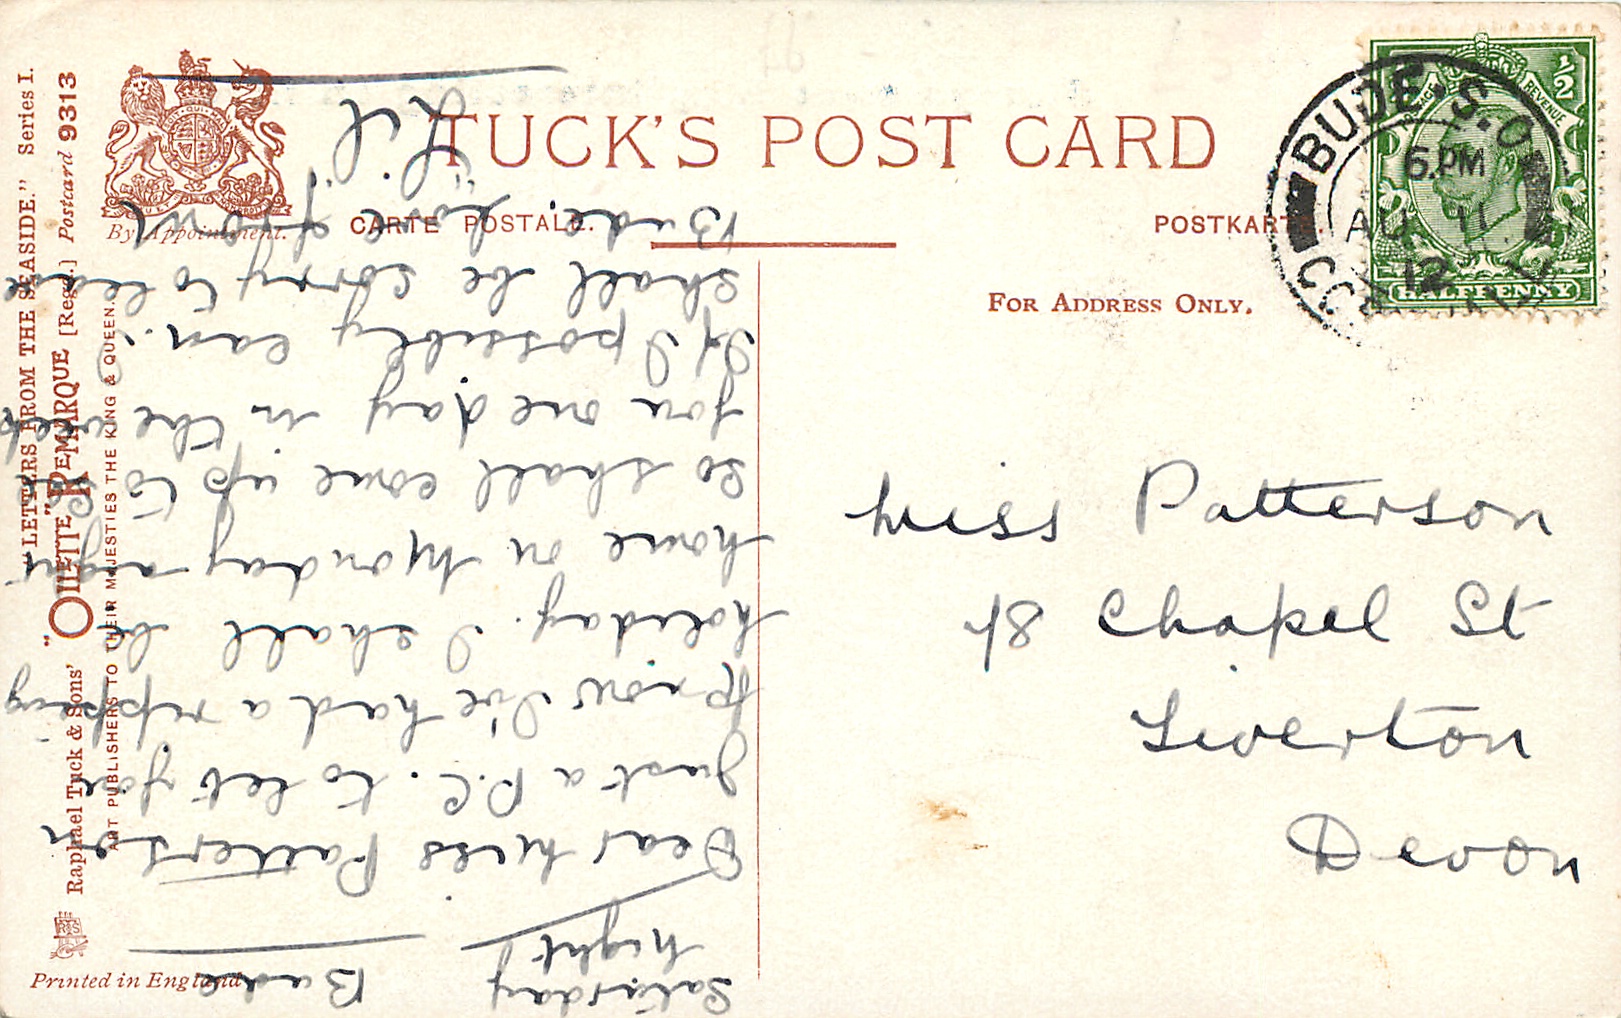 TUCK'S POST CARD
CARTE POSTALE.
POSTKARTE.
FOR ADDRESS ONLY.
By Appointment.
"LETTERS FROM THE SEASIDE." Series I.
Raphael Tuck & Sons' "OILETTE" REMARQUE [Regd.] Postcard 9313
ART PUBLISHERS TO THEIR MAJESTIES THE KING & QUEEN.
Printed in England
BUDE. S.O.
6.PM
AU 11
12
CORNWALL
½
REVENUE
HALFPENNY
Miss Patterson
18 Chapel St
Tiverton
Devon
Saturday
night
Bude
Dear Miss Patterson
Just a P.C. to let you
know I've had a ripping
holiday. I shall be
home on Monday night
so shall come up to see
you one day in the week
If I possibly can. I
shall be sorry to leave
Bude. Love from
Lil